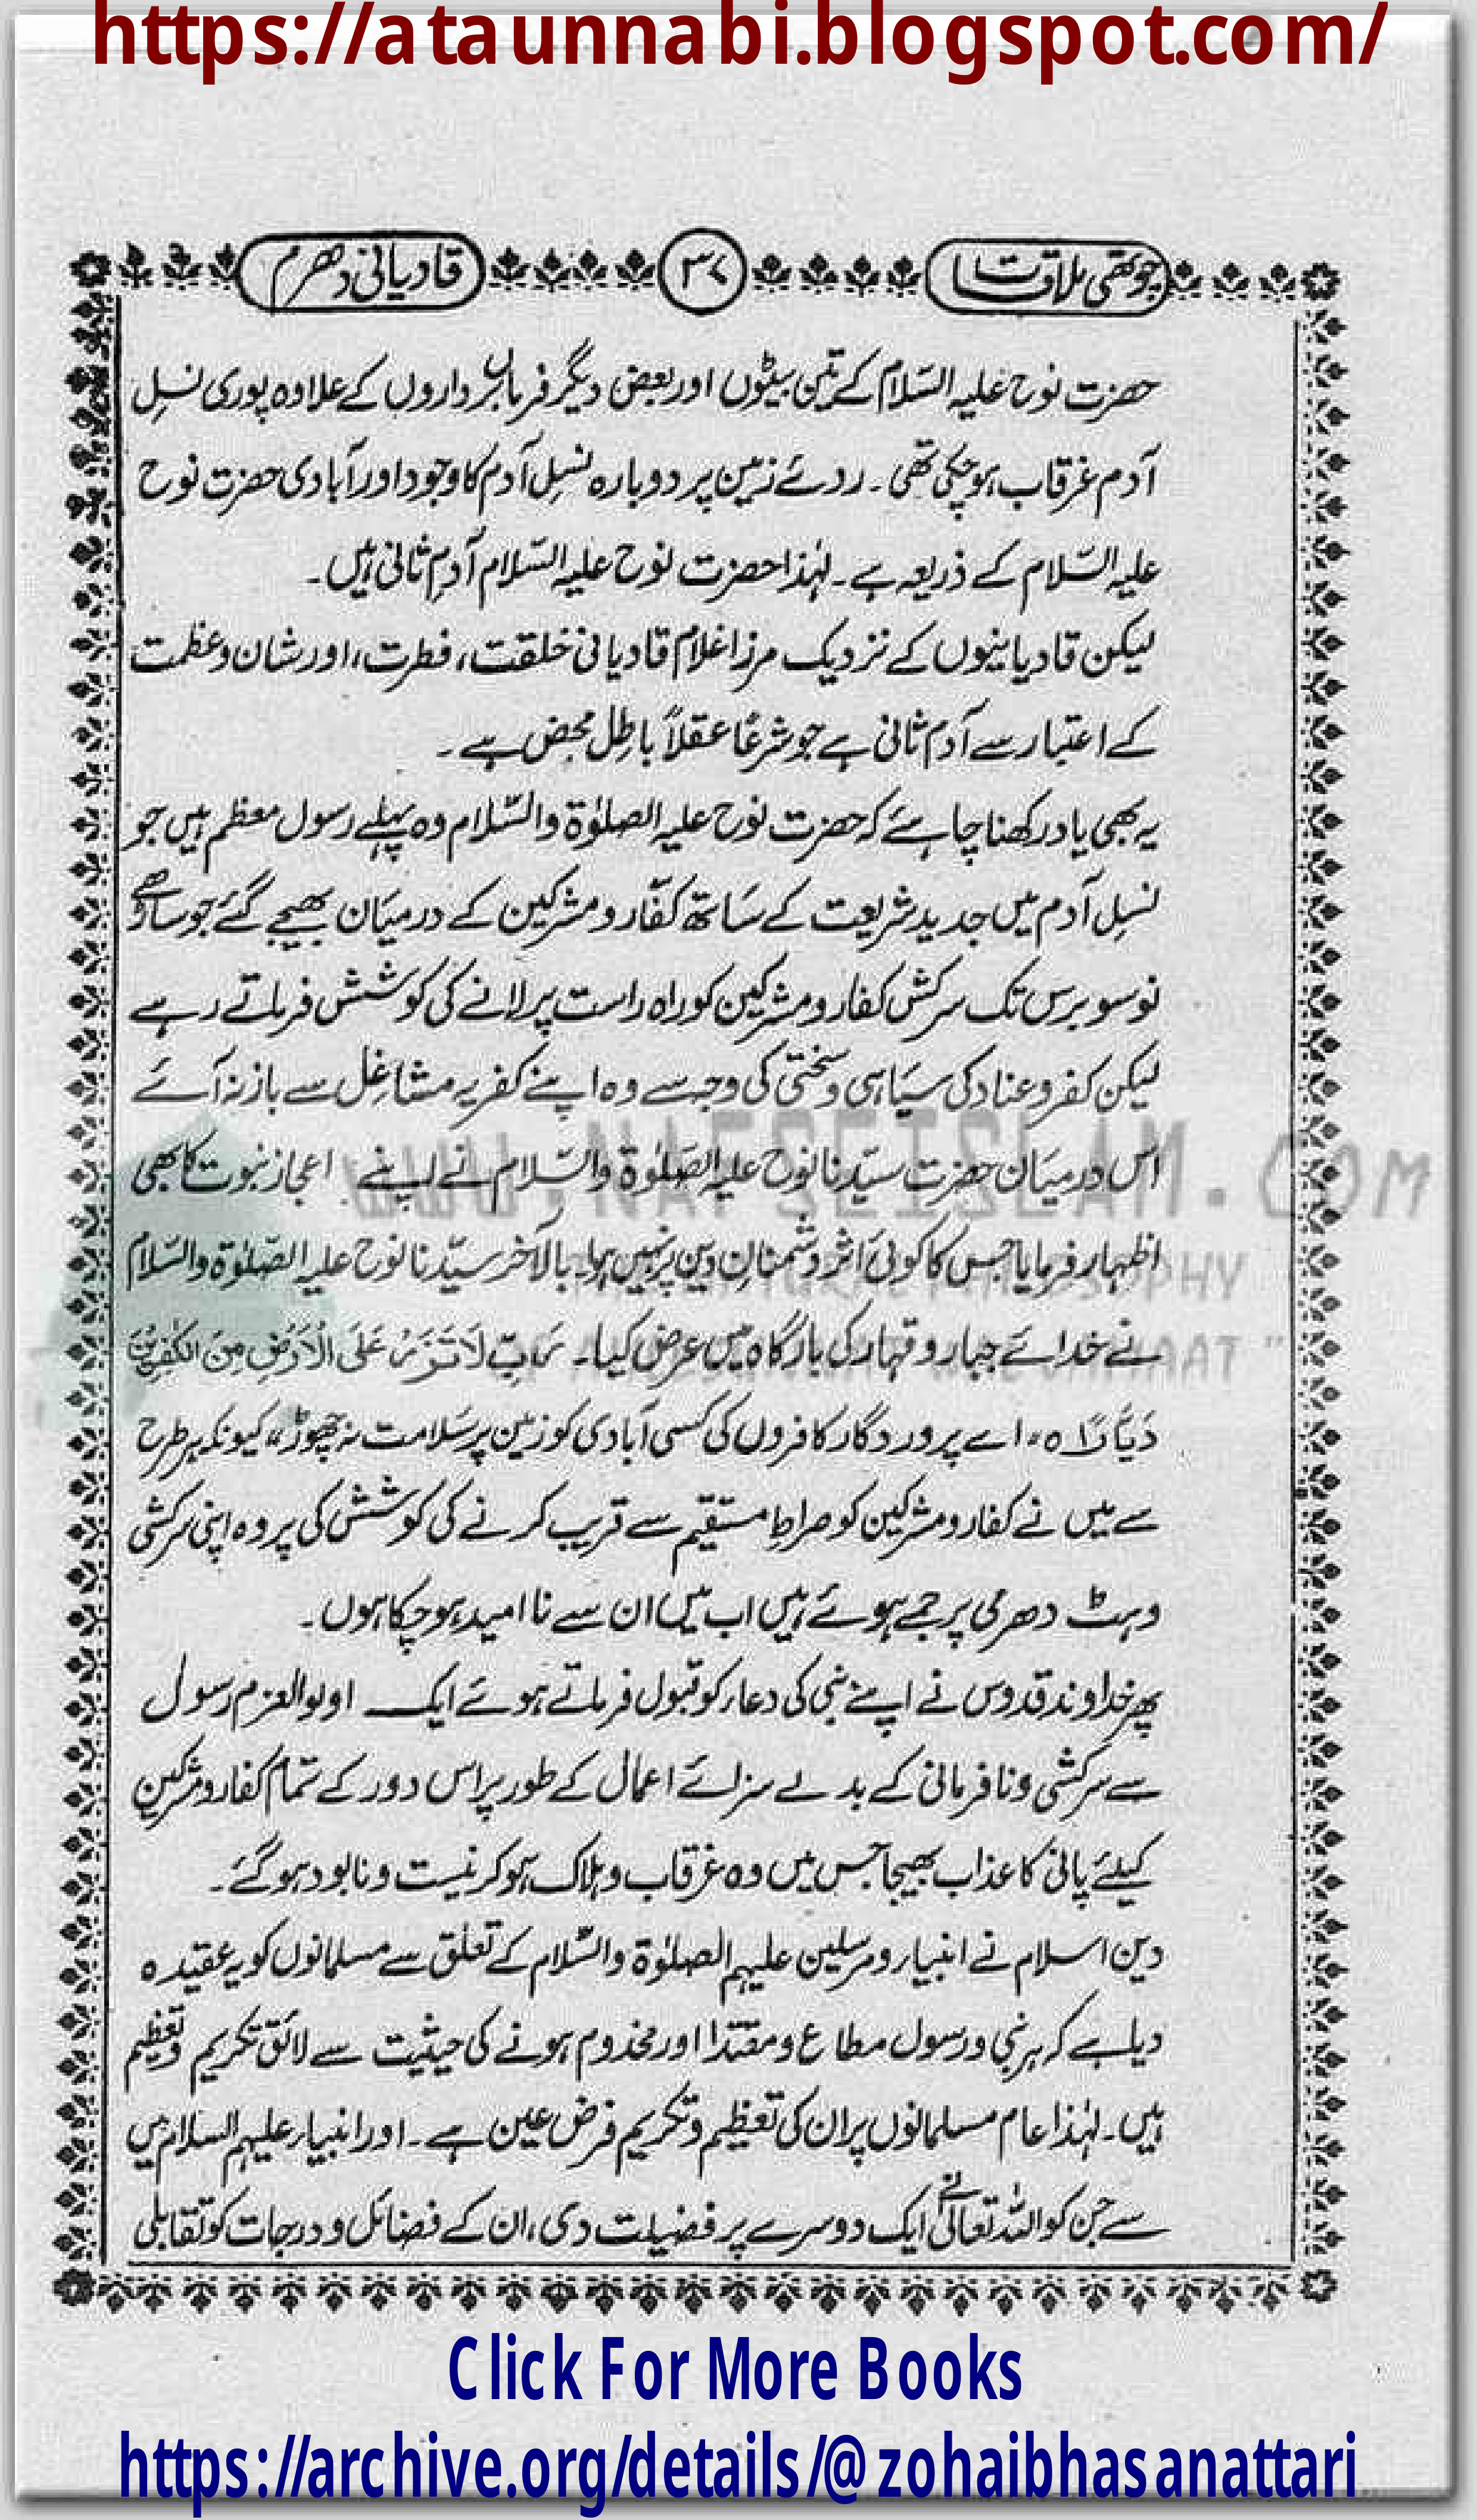 https://ataunnabi.blogspot.com/
چوتھی ملاقات ۳۷ قادیانی دھرم
حضرت نوح علیہ السّلام کے تین بیٹوں اور بعض دیگر فرمانبرداروں کے علاوہ پوری نسلِ
آدم غرقاب ہوچکی تھی۔ روئے زمین پر دوبارہ نسلِ آدم کا وجود اور آبادی حضرت نوح
علیہ السّلام کے ذریعہ ہے۔ لہٰذا حضرت نوح علیہ السّلام آدمِ ثانی ہیں۔
لیکن قادیانیوں کے نزدیک مرزا غلام قادیانی خلقت، فطرت، اور شان و عظمت
کے اعتبار سے آدم ثانی ہے جو شرعًا عقلاً باطِل محض ہے۔
یہ بھی یاد رکھنا چاہئے کہ حضرت نوح علیہ الصلوٰۃ والسّلام وہ پہلے رسول معظم ہیں جو
نسلِ آدم میں جدید شریعت کے ساتھ کفّار و مشرکین کے درمیان بھیجے گئے جو ساڑھے
نو سو برس تک سرکش کفار و مشرکین کو راہ راست پر لانے کی کوشش فرماتے رہے
لیکن کفر و عناد کی سیاہی و سختی کی وجہ سے وہ اپنے کفریہ مشاغل سے باز نہ آئے
اس درمیان حضرت سیّدنا نوح علیہ الصّلوٰۃ والسّلام نے اپنے اعجاز نبوت کا بھی
WWW.NAFSEISLAM.COM
اظہار فرمایا جس کا کوئی اثر دشمنانِ دین پر نہیں ہوا۔ بالآخر سیّدنا نوح علیہ الصّلوٰۃ والسّلام
نے خدائے جبار و قہار کی بارگاہ میں عرض کیا۔ رَبِّ لَا تَذَرْ عَلَی الْاَرْضِ مِنَ الْکٰفِرِیْنَ
دَیَّارًا ہ، اے پروردگار کافروں کی کسی آبادی کو زمین پر سلامت نہ چھوڑ، کیونکہ ہر طرح
سے میں نے کفار و مشرکین کو صراطِ مستقیم سے قریب کرنے کی کوشش کی پر وہ اپنی سرکشی
و ہٹ دھرمی پر جمے ہوئے ہیں اب میں ان سے نا امید ہوچکا ہوں۔
پھر خداوند قدوس نے اپنے نبی کی دعاء کو قبول فرماتے ہوئے ایک اولوالعزم رسول
سے سرکشی و نافرمانی کے بدلے سزائے اعمال کے طور پر اس دور کے تمام کفار و مشرکین
کیلئے پانی کا عذاب بھیجا جس میں وہ غرقاب و ہلاک ہوکر نیست و نابود ہوگئے۔
دین اسلام نے انبیاء و مرسلین علیہم الصلوٰۃ والسّلام کے تعلق سے مسلمانوں کو یہ عقیدہ
دیا ہے کہ ہر نبی و رسول مطاع و مقتدا اور مخدوم ہونے کی حیثیت سے لائق تکریم و تعظیم
ہیں۔ لہٰذا عام مسلمانوں پر ان کی تعظیم و تکریم فرض عین ہے۔ اور انبیاء علیہم السلام میں
سے جن کو اللہ تعالیٰ نے ایک دوسرے پر فضیلت دی، ان کے فضائل و درجات کو تقابلی
Click For More Books
https://archive.org/details/@zohaibhasanattari